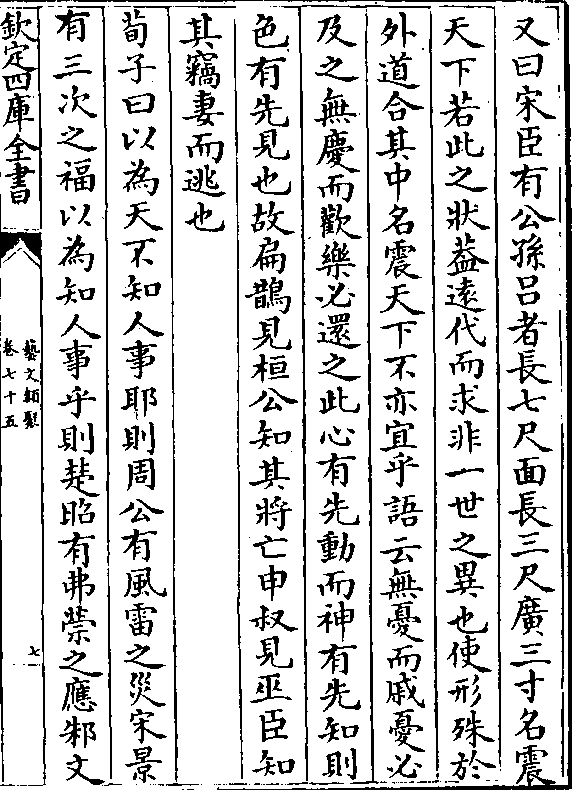 又曰宋臣有公孫吕者長七尺面長三尺廣三寸名震
天下若此之狀葢逺代而求非一世之異也使形殊於
外道合其中名震天下不亦宜乎語云無憂而戚憂必
及之無慶而歡樂必還之此心有先動而神有先知則
色有先見也故扁鵲見桓公知其將亡申叔見巫臣知
其竊妻而逃也
荀子曰以為天不知人事耶則周公有風雷之災宋景
有三次之福以為知人事乎則楚昭有弗禜之應邾文
欽定四庫全書
藝文類聚
卷七十五
七